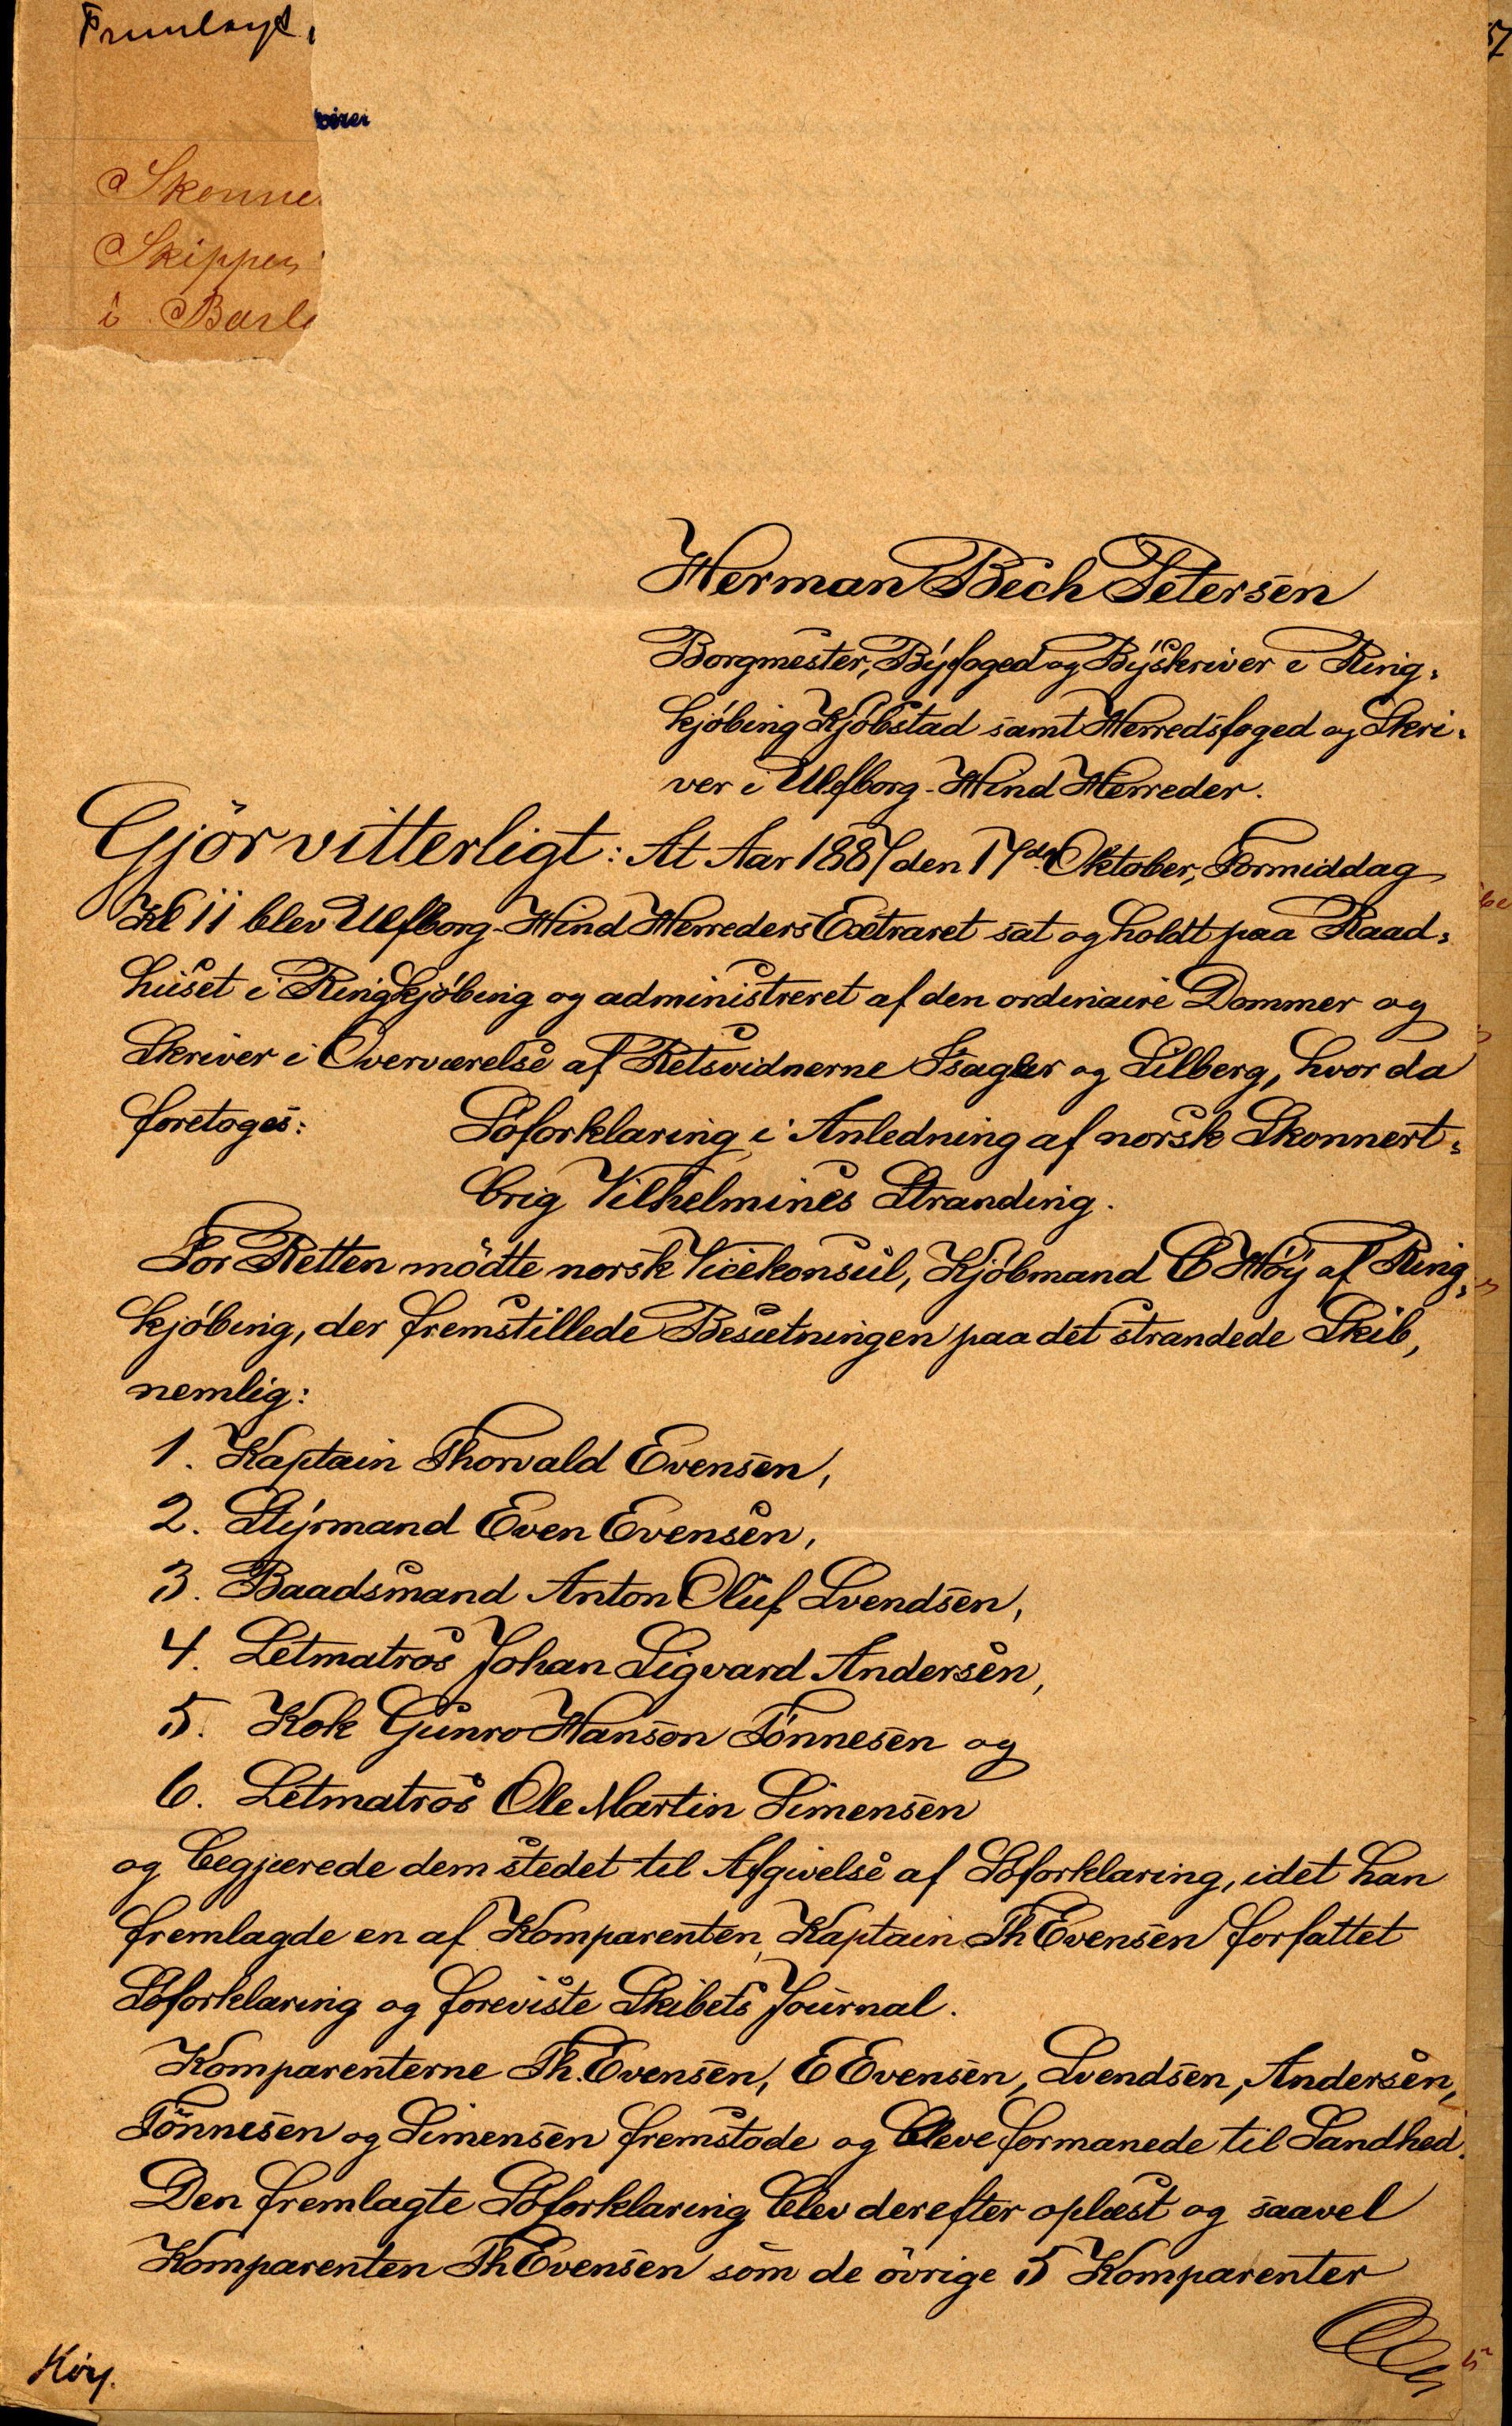 Skonne
Skipper
i Barl
Herman Bech Petersen
Borgmester, Byfoged og Byskriver i Ring-
kjøbing Kjøbstad samt Herredsfoged og Skri-
ver i Ulfborg-Hind Herreder.
Gjör vitterligt: At Aar 1887 den 17de Oktober, Formiddag
Kl 11 blev Ulfborg-Hind Herreders Extraret sat og holdt paa Raad-
huset i Ringkjøbing og administreret af den ordinaire Dommer og
Skriver i Overværelse af Retsvidnerne Isager og Lilberg, hvor da
foretoges:
Søforklaring i Anledning af norsk Skonnert-
brig Vilhelmines Stranding.
For Retten mödte norsk Vicekonsul, Kjøbmand C Høy af Ring-
kjøbing, der fremstillede Besætningen paa det strandede Skib,
nemlig:
1. Kaptain Thorvald Evensen,
2. Styrmand Even Evensen,
3. Baadsmand Anton Oluf Svendsen,
4. Letmatros Johan Sigvard Andersen,
5. Kok Gunro Hanson Tønnesen og
6. Letmatros Ole Martin Simensen
og begjærede dem stedet til Afgivelse af Søforklaring, idet han
fremlagde en af Komparenten, Kaptain Th Evensen forfattet
Søforklaring og foreviste Skibets Journal.
Komparenterne Th. Evensen, E Evensen, Svendsen, Andersen,
Tönnesen og Simensen fremstode og bleve formanede til Sandhed.
Den fremlagte Søforklaring blev derefter oplæst og saavel
Komparenten Th Evensen som de övrige 5 Komparenter
Høy.